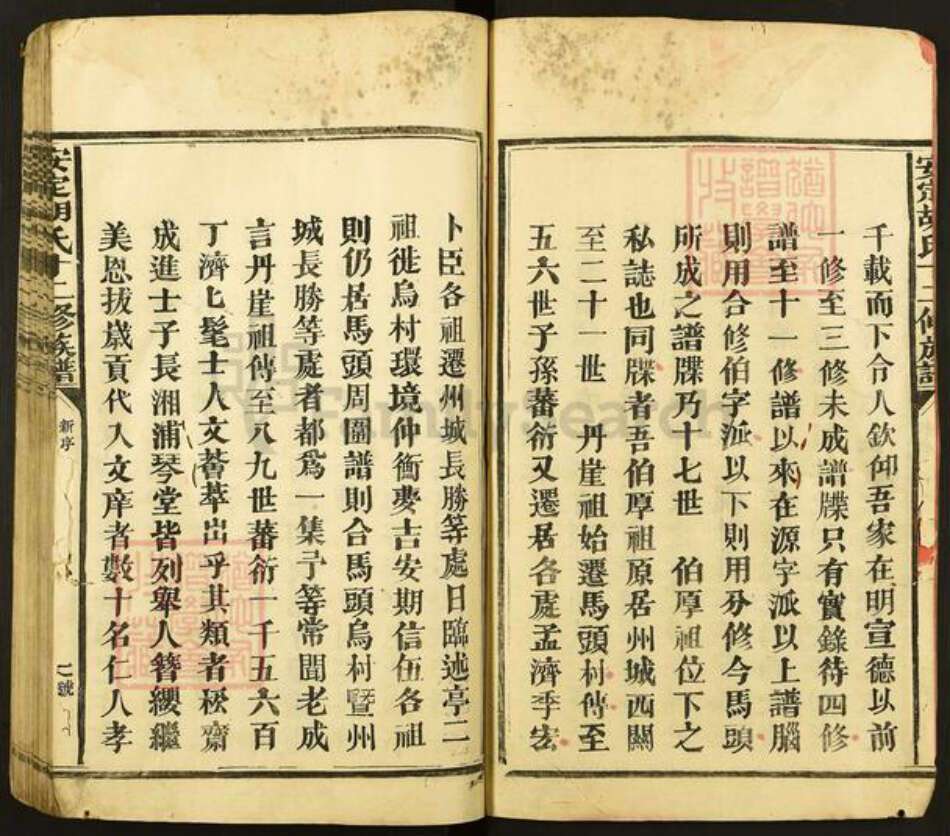 安定胡氏十二修族譜
千載而下令人欽仰吾家在明宣德以前
一修至三修未成譜牒只有實錄待四修
譜至十一修譜以來在源字派以上譜腦
則用合修伯字派以下則用分修今馬頭
所成之譜牒乃十七世 伯厚祖位下之
私誌也同牒者吾伯厚祖原居州城西關
至二十一世 丹崖祖始遷馬頭村傳至
五六世子孫蕃衍又遷居各處孟濟季宏
卜臣各祖遷州城長勝等處日臨述亭二
祖徙烏村環境仲衡夔吉安期信伍各祖
則仍居馬頭周圍譜則合馬頭烏村暨州
城長勝等處者都為一集予等常聞老成
言丹崖祖傳至八九世蕃衍一千五六百
丁濟匕髦士人文薈萃出乎其類者崧齋
成進士子長湘浦琴堂皆列舉人簪纓繼
美恩拔歲貢代入文庠者數十名仁人孝
安定胡氏十二修族譜
新序
號
FamilySearch